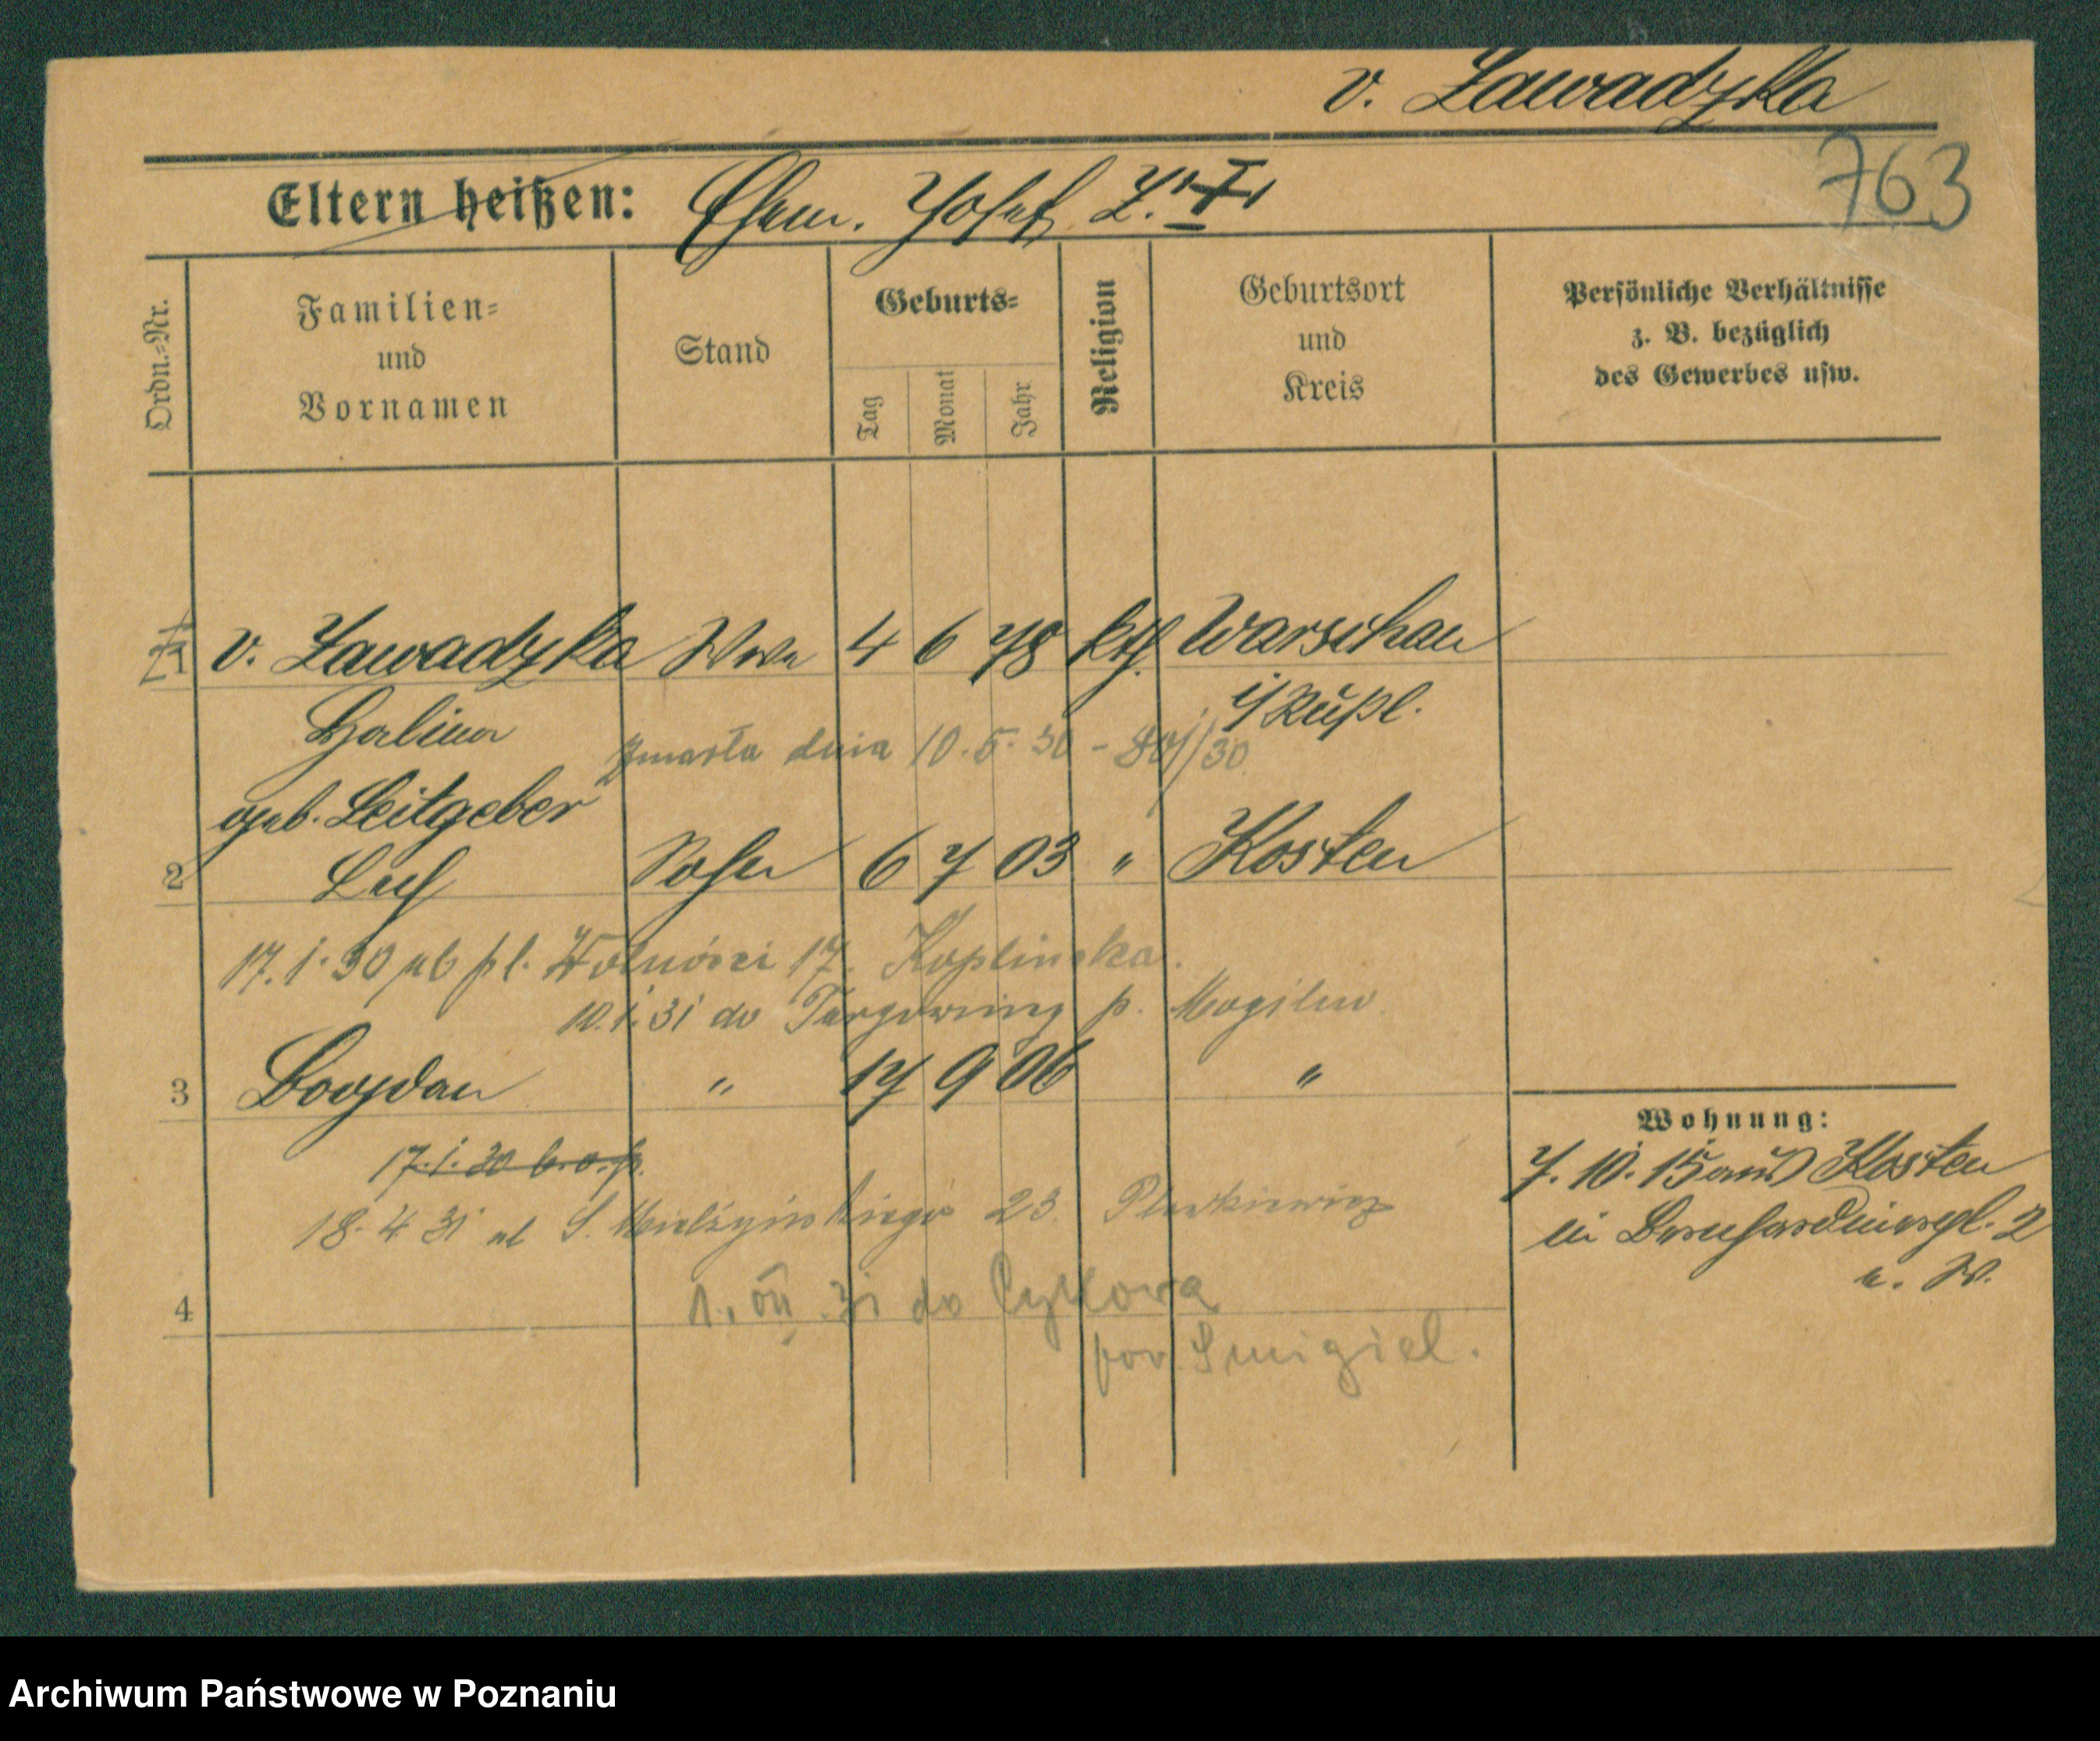 v. Zawadzka
763
Eltern heißen: Ehem. Josef Z.
Ordn.=Nr.
Familien=
und
Vornamen
Stand
Geburts=
Tag
Monat
Jahr
Religion
Geburtsort
und
Kreis
Persönliche Verhältnisse
z. B. bezüglich
des Gewerbes usw.
1 v. Zawadzka Wwe 4 6 78 kth. Warschau
i/Rußl.
Halina
zmarła dnia 10.5.30
geb. Leitgeber
2 Lech Sohn 6 7 03 " Kosten
17.1.30 pl. Wolności 17. Koplinska.
10.1.31 do p. Mogilno
3 Bogdan " 17 9 06 "
17.1.30 b.o.p.
18.4 31 ul S. Mielżyńskiego 23.
4
31 do
pow. Smigiel.
Wohnung:
7.10.15 aus Kosten
in Bernhardinerpl. 2